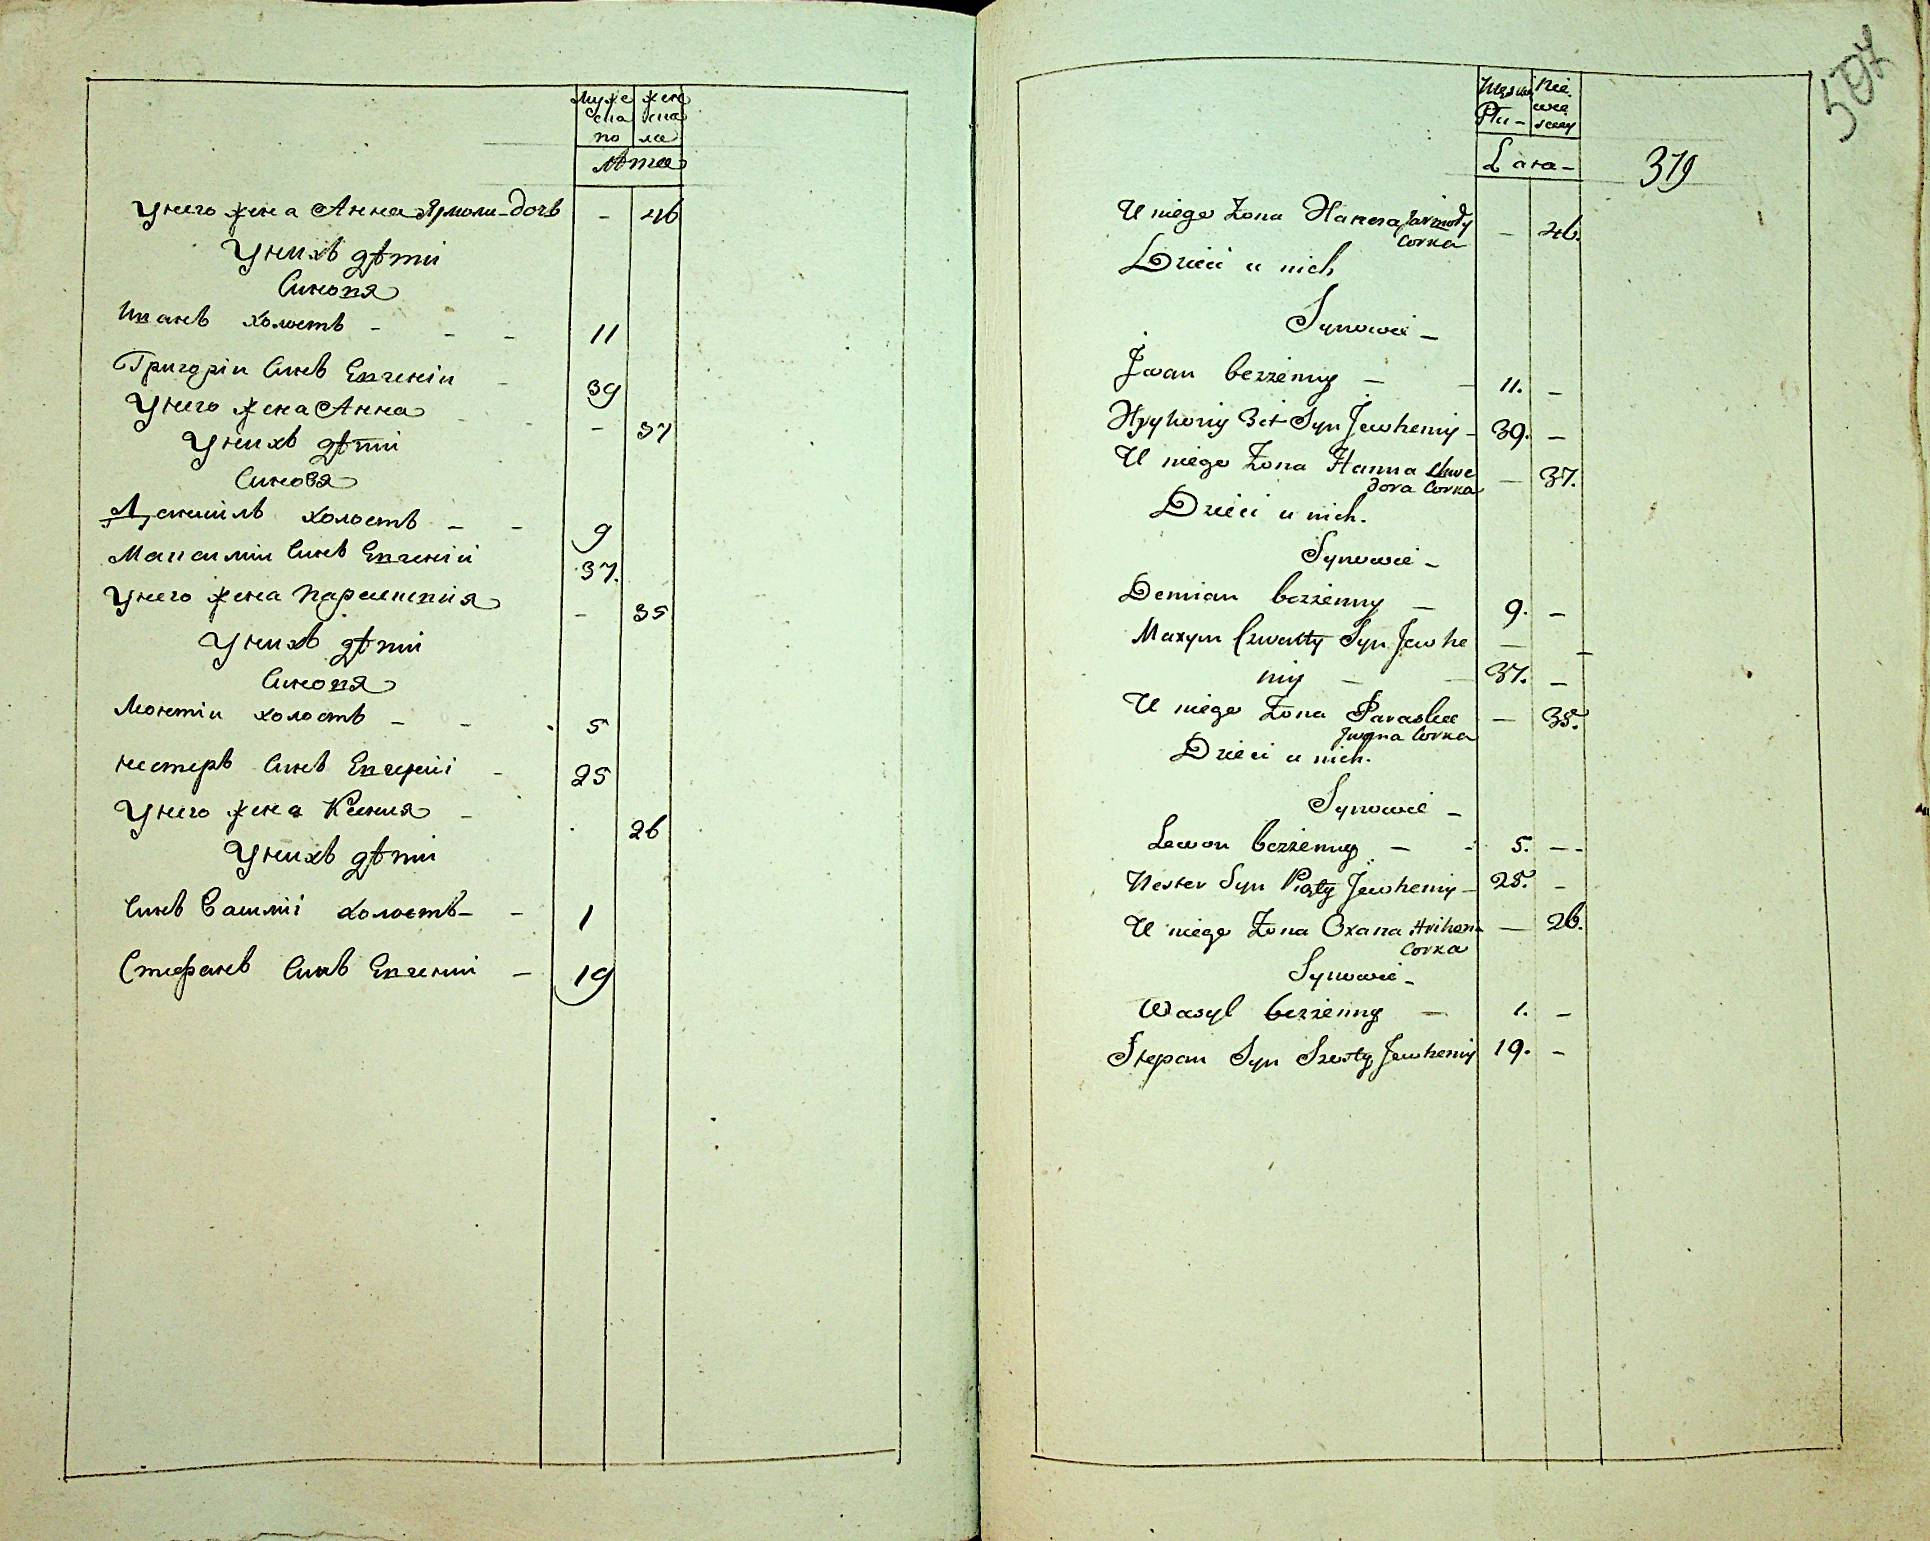 муже
ска
по
жен
ска
ла
лѣта
Унего жена Анна Ярмоли дочь - 46
Унихъ дѣти
Синовя
Иванъ холостъ - - - 11
Григорiи Синъ Евгенiи - 39
Унего жена Анна - - 37
Унихъ дѣти
Синовя
холостъ - - 9
Максимiи Синъ Евгенiй 37.
Унего жена Параскевiя - 35
Унихъ дѣти
Синовя
холостъ - - 5
нестеръ Синъ Евгенiй - 25
Унего жена Ксения - 26
Унихъ дѣти
Синъ Василiй холостъ - - 1
Стефанъ Синъ Евгенiй - 19
507
Płci -
Nie
wie
sciey
Lata -
379
U niego Żona Hanna Jarmoły — 46.
Corka
Dzieci u nich
Synowie -
Jwan bezżenny — - 11. -
Hryhoriy 3ci Syn Jewheniy - 39. -
U niego Żona Hanna — 37.
dora Corka
Dzieci u nich.
Synowie -
Demian bezżenny — 9. -
Maxym Czwarty Syn Jewhe —
niy — - 37. -
U niego Żona Paraska — 35.
Jwana Corka
Dzieci u nich.
Synowie -
Lewon bezżenny — - 5. - -
Nester Syn Piąty Jewheniy - 25. -
U niego Żona Oxana Hrihori — 26.
Corka
Synowie -
Wasyl bezżenny — 1. -
Stepan Syn Szosty Jewheniy 19. -